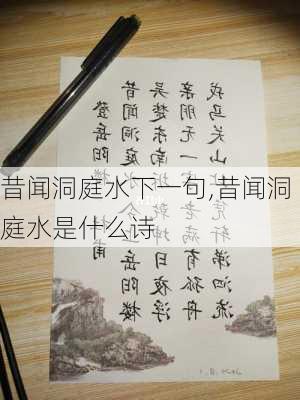 登岳阳楼 甫
昔闻洞庭 上岳阳楼
吴楚东南 乾坤日夜浮
亲朋无一字老病有孤舟
戎马关山 凭轩涕泗流
昔闻洞庭水下一句,昔闻洞
庭水是什么诗